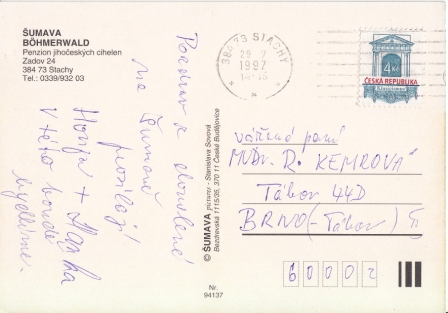 ŠUMAVA
BÖHMERWALD
Penzion jihočeských cihelen
Zadov 24
384 73 Stachy
Tel.: 0339/932 03
Pozdrav z dovolené
na Šumavě
posílají
Honza +
V této boudě
bydlíme.
© ŠUMAVA PICTURA - Stanislava Sovová
Bezdrevská 1115/35, 370 11 České Budějovice
384 73 STACHY
1997
4 Kč
ČESKÁ REPUBLIKA
Klasicismus
Vážená paní
MUDr. R. KEMROVÁ
Tábor 44D
BRNO (-Tábor)
60002
Nr.
94137